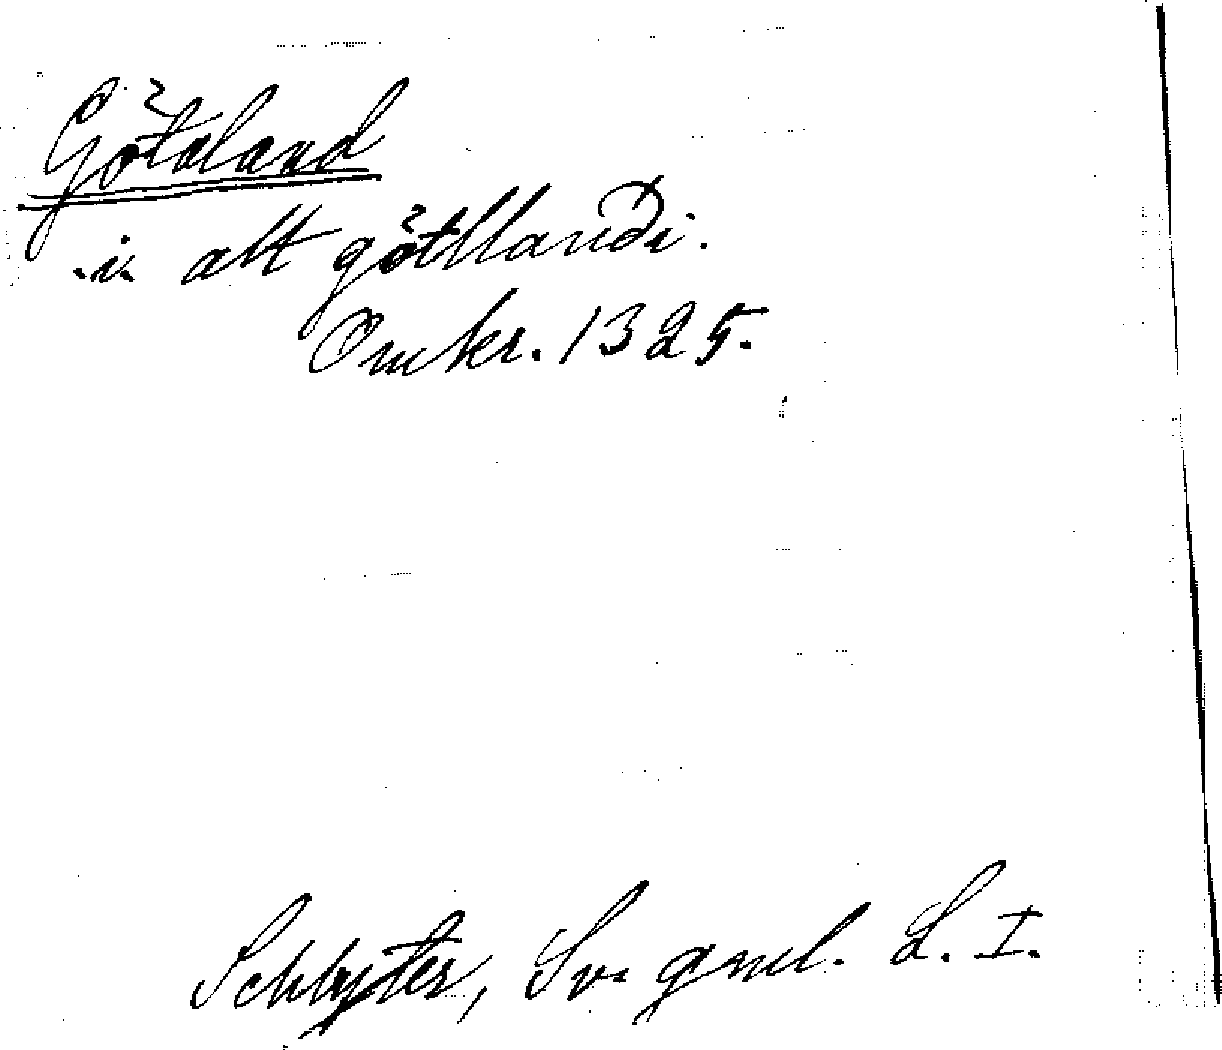 Götaland
.i. alt götllandi.
Omkr. 1325.
Schlyter, Sv. gml. L. I.